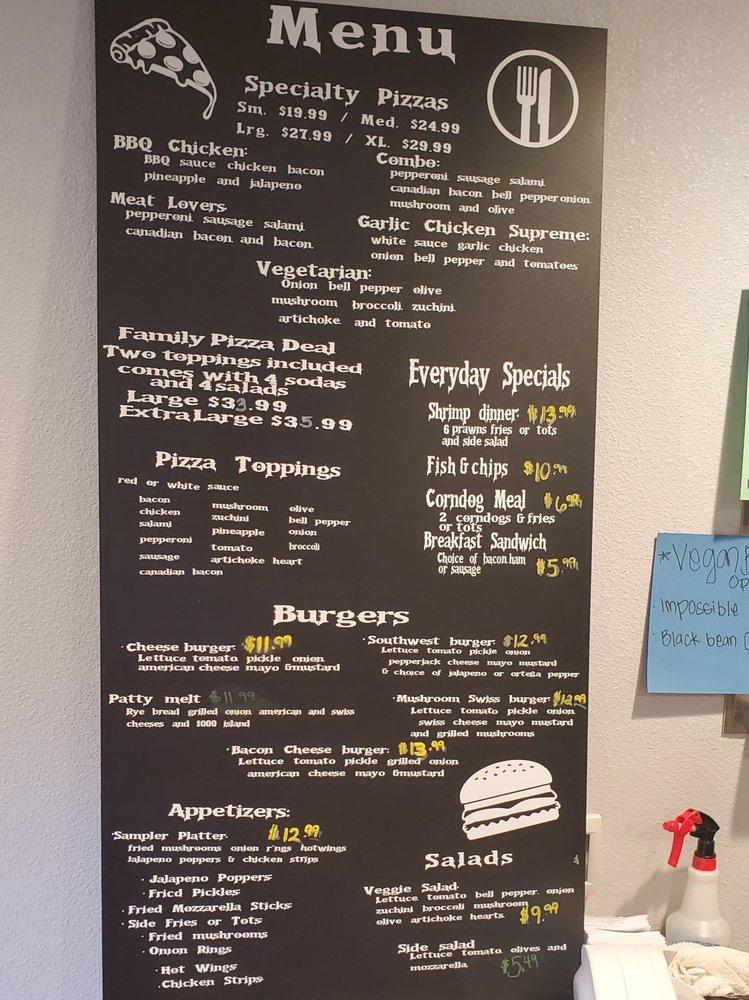 Menu
Specialty Pizzas
Sm. $19.99 / Med. $24.99
Lrg. $27.99 / XL. $29.99
BBQ Chicken:
BBQ sauce chicken bacon
pineapple and jalapeno
Combo:
pepperoni, sausage salami,
canadian bacon, bell pepper,onion,
mushroom and olive
Meat Lovers,
pepperoni, sausage, salami,
canadian bacon, and bacon,
Garlic Chicken Supreme:
white sauce garlic chicken
onion bell pepper and tomatoes
Vegetarian:
Onion bell pepper olive
mushroom broccoli, zuchini,
artichoke, and tomato
Family Pizza Deal
Two toppings included
comes with 4 sodas
and 4 salads
Large $33.99
Extra Large $35.99
Everyday Specials
Shrimp dinner: $13.99
6 prawns fries or tots
and side salad
Fish & chips $10.99
Corndog Meal $6.99
2 corndogs & fries
or tots
Breakfast Sandwich
Choice of bacon,ham
or sausage $5.99
Pizza Toppings
red or white sauce
bacon
chicken
salami
pepperoni
sausage
canadian bacon
mushroom
zuchini
pineapple
tomato
artichoke heart
olive
bell pepper
onion
broccoli
Burgers
· Cheese burger: $11.99
Lettuce tomato, pickle onion,
american cheese mayo &mustard
· Southwest burger: $12.99
Lettuce tomato pickle onion
pepperjack cheese mayo mustard
& choice of jalapeno or ortega pepper
Patty melt $11.99
Rye bread grilled onion, american and swiss
cheeses and 1000 island
· Mushroom Swiss burger: $12.99
Lettuce tomato pickle onion,
swiss cheese mayo mustard
and grilled mushrooms
· Bacon Cheese burger: $13.99
Lettuce tomato pickle grilled onion
american cheese mayo &mustard
Appetizers:
·Sampler Platter: $12.99
fried mushrooms onion r'ngs hotwings
Jalapeno poppers & chicken strips
· Jalapeno Poppers
· Fried Pickles
· Fried Mozzarella Sticks
· Side Fries or Tots
· Fried mushrooms
· Onion Rings
· Hot Wings
· Chicken Strips
Salads
Veggie Salad:
Lettuce, tomato bell pepper, onion
zuchini broccoli mushroom
olive artichoke hearts, $9.99
Side salad
Lettuce tomato, olives and
mozzarella $5.49
*Vegan
· impossible
· Black bean